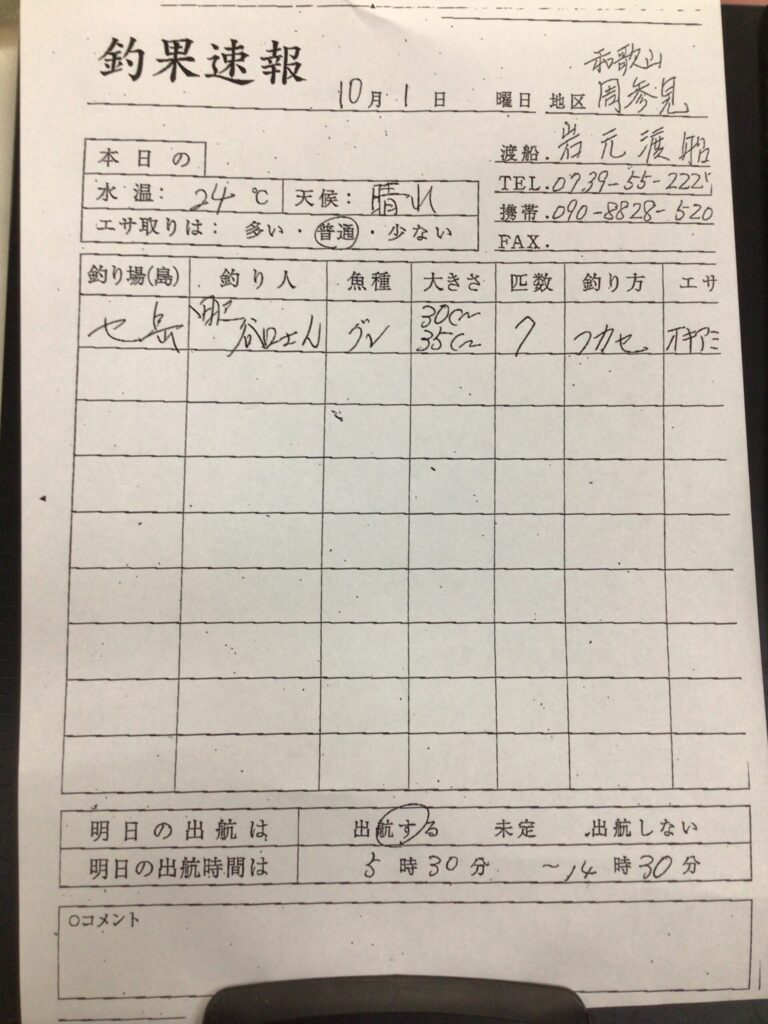 釣果速報
和歌山
10月1日 曜日 地区 周参見
渡船. 岩元渡船
TEL. 0739-55-222
携帯. 090-8828-520
FAX.
本日の
水温: 24 ℃ 天候: 晴れ
エサ取りは: 多い・普通・少ない
釣り場(島) 釣り人 魚種 大きさ 匹数 釣り方 エサ
30cm
セ岳 谷口さん グレ 35cm 7 フカセ オキアミ
明日の出航は 出航する 未定 出航しない
明日の出航時間は 5時30分 ~14時30分
○コメント